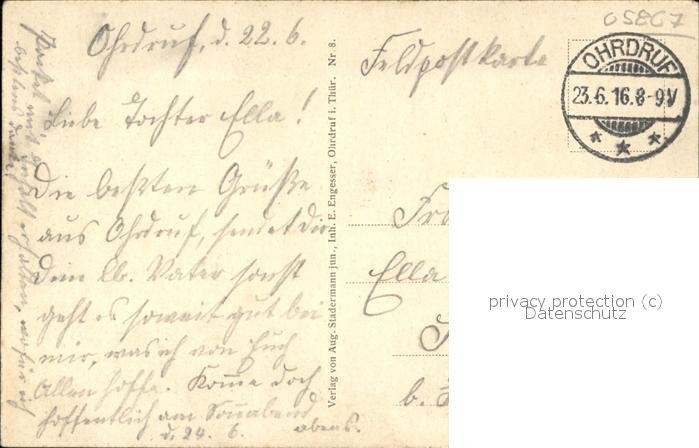 05867
Ohrdruf, d. 22.6.
Feldpostkarte
OHRDRUF
23.6.16.8-9V
Liebe Tochter Ella!
Die besten Grüße
aus Ohrdruf, sendet dir
Dein lb. Vater sonst
geht es soweit gut bei
mir, was ich von Euch
Allen hoffe. Komme doch
hoffentlich am Sonnabend
d. 24. 6. abens.
Paket mit Geld erhalten, wofür ich
bestens danke
Verlag von Aug. Stadermann jun., Inh. E. Engesser, Ohrdruf i. Thür. Nr 8.
Ella
b.
privacy protection (c)
Datenschutz